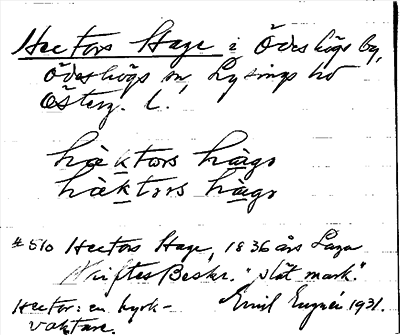 Hectors Hage i Ödeshögs by,
Ödeshögs sn, Lysings hd
Österg. l.
häktors hāgs
häktors hags
#510 Hectors Hage, 1836 års Laga
Skiftes Beskr. "slät mark".
Hector: en kyrk-
vaktare.
Emil 1931.